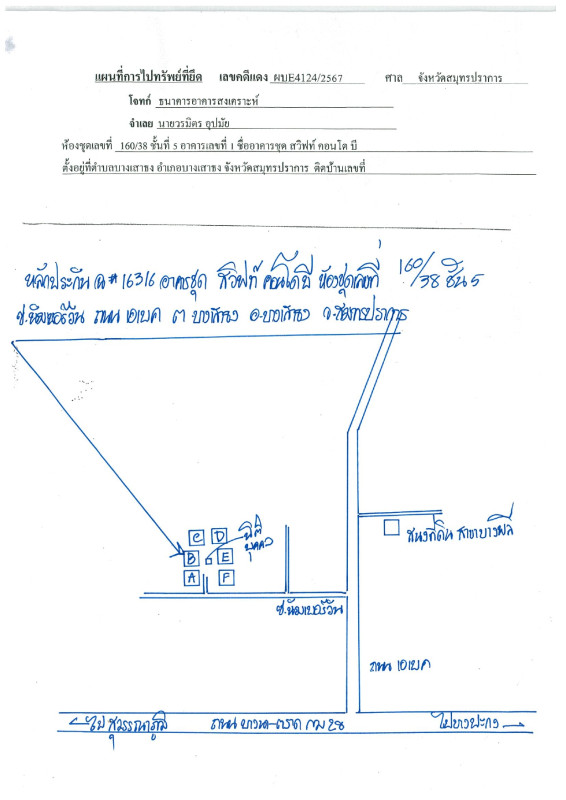 แผนที่การไปทรัพย์ที่ยึด เลขคดีแดง ผบE4124/2567 ศาล จังหวัดสมุทรปราการ
โจทก์ ธนาคารอาคารสงเคราะห์
จำเลย นายวรมิตร อุปมัย
ห้องชุดเลขที่ 160/38 ชั้นที่ 5 อาคารเลขที่ 1 ชื่ออาคารชุด สวิฟท์ คอนโด บี
ตั้งอยู่ที่ตำบลบางเสาธง อำเภอบางเสาธง จังหวัดสมุทรปราการ ติดบ้านเลขที่
หลักประกัน #16316 อาคารชุด สวิฟท์ คอนโด บี ห้องชุดเลขที่ 160/38 ชั้น 5
ถนน เอแบค ต บางเสาธง อ.บางเสาธง จ.สมุทรปราการ
C D
นิติ
บุคคล
B E
A F
สาขาบางพลี
ถนน เอแบค
ไป สุวรรณภูมิ ถนน บางนา-ตราด กม 28 ไปบางปะกง